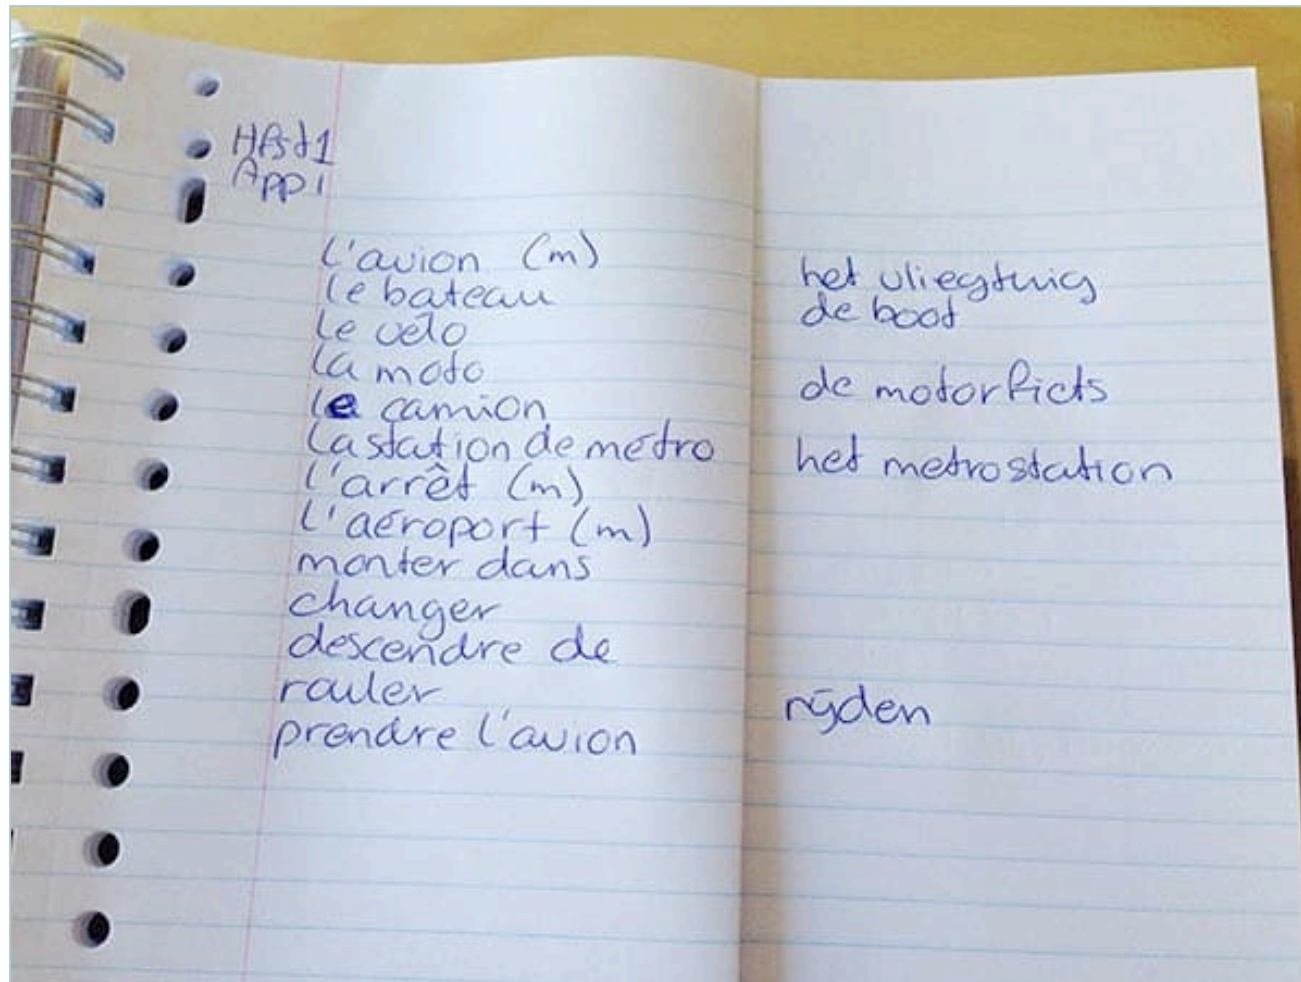 Hfst1
App1
l'avion (m)
le bateau
le vélo
la moto
le camion
la station de métro
l'arrêt (m)
l'aéroport (m)
monter dans
changer
descendre de
rouler
prendre l'avion
het vliegtuig
de boot
de motorfiets
het metrostation
rijden